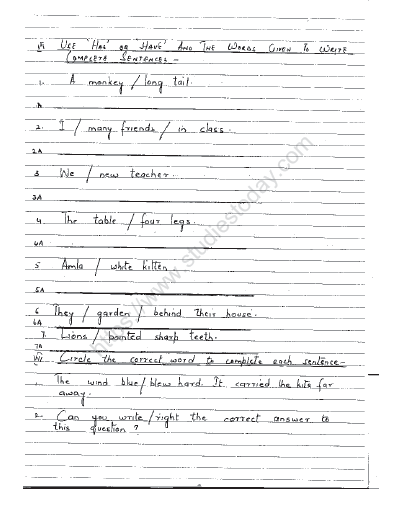 VI USE 'HAS' OR 'HAVE' AND THE WORDS GIVEN TO WRITE
COMPLETE SENTENCES -
1. A monkey / long tail.
A
2. I / many friends / in class.
2A
3 We / new teacher.
3A
4. The table / four legs.
4A
5 Amla / white kitten
5A
6 They / garden / behind their house.
6A
7. Lions / pointed sharp teeth.
7A
Circle the correct word to complete each sentence-
1. The wind blue/blew hard. It carried the kite far
away.
2. Can you write / right the correct answer to
this question ?
https://www.studiestoday.com